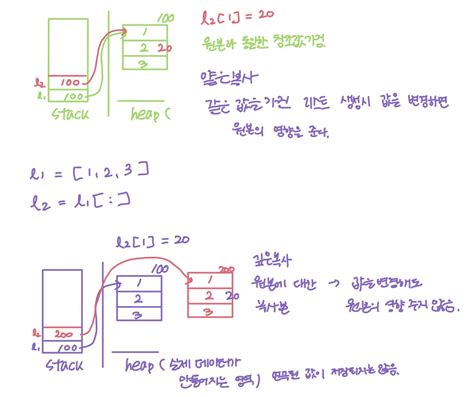 l₂[1] = 20
100
1
2 20
3
원본과 동일한 참조값가짐.
얕은복사
같은 값을 가진 리스트 생성시 값을 변경하면
원본의 영향을 준다.
l₂ 100
l₁ 100
stack
heap (
l₁ = [1, 2, 3]
l₂ = l₁[:]
l₂[1] = 20
100
1
2
3
200
1
2 20
3
깊은복사
원본에 대한 → 값을 변경해도
복사본 원본의 영향 주지 않음.
l₂ 200
l₁ 100
stack
heap ( 실제 데이터가
만들어지는 영역) 연속된 값이 저장되지는 않음.